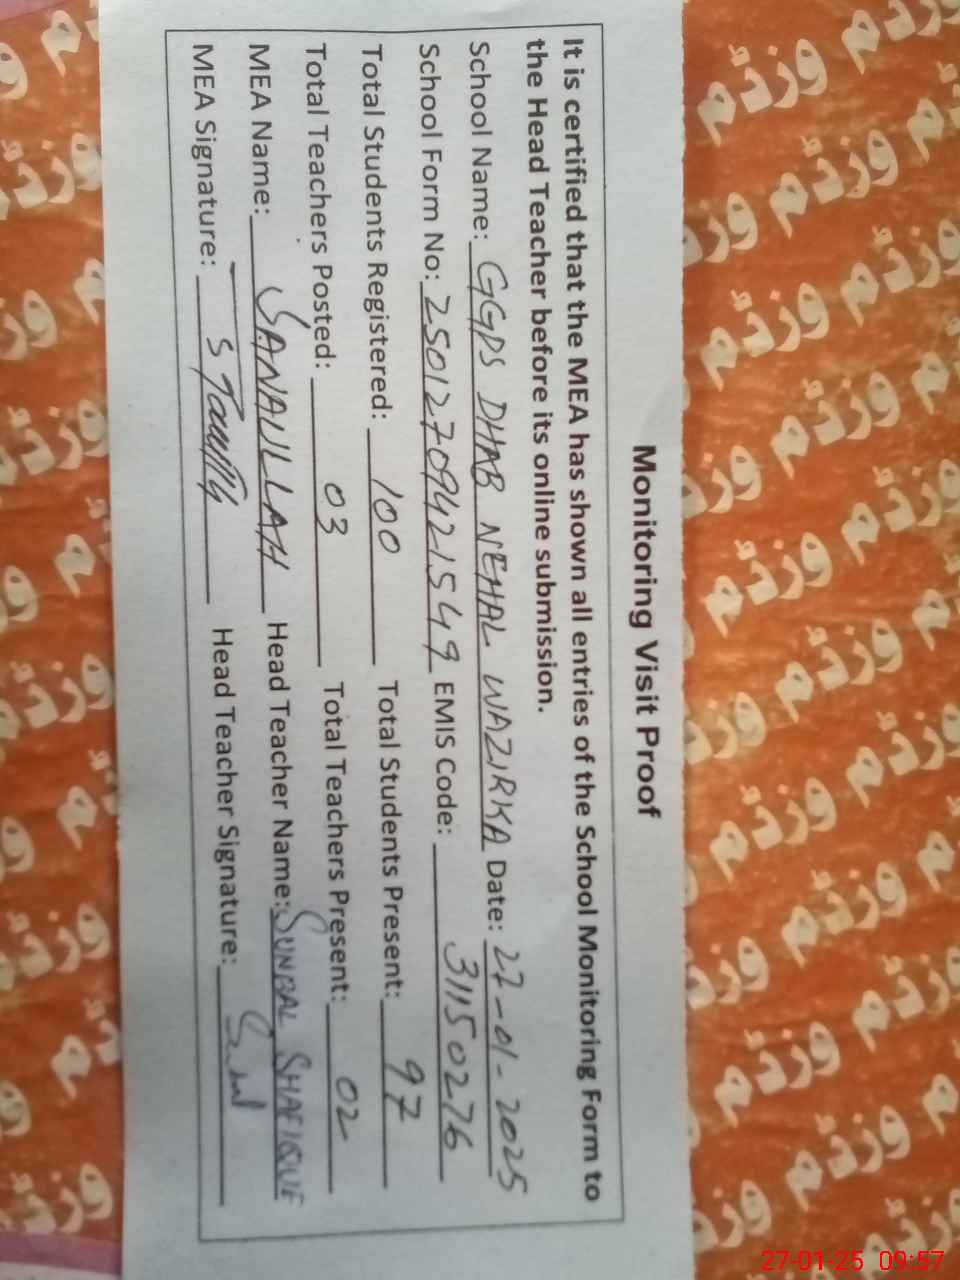 Monitoring Visit Proof
It is certified that the MEA has shown all entries of the School Monitoring Form to
the Head Teacher before its online submission.
School Name: GGPS DHAB NEHAL WAZIRKA Date: 27-01-2025
School Form No: 25012709421549 EMIS Code: 31150276
Total Students Registered: 100 Total Students Present: 97
Total Teachers Posted: 03 Total Teachers Present: 02
MEA Name: SANAULLAH Head Teacher Name: SUNBAL SHAFIQUE
MEA Signature: Head Teacher Signature:
27-01-25 09:57